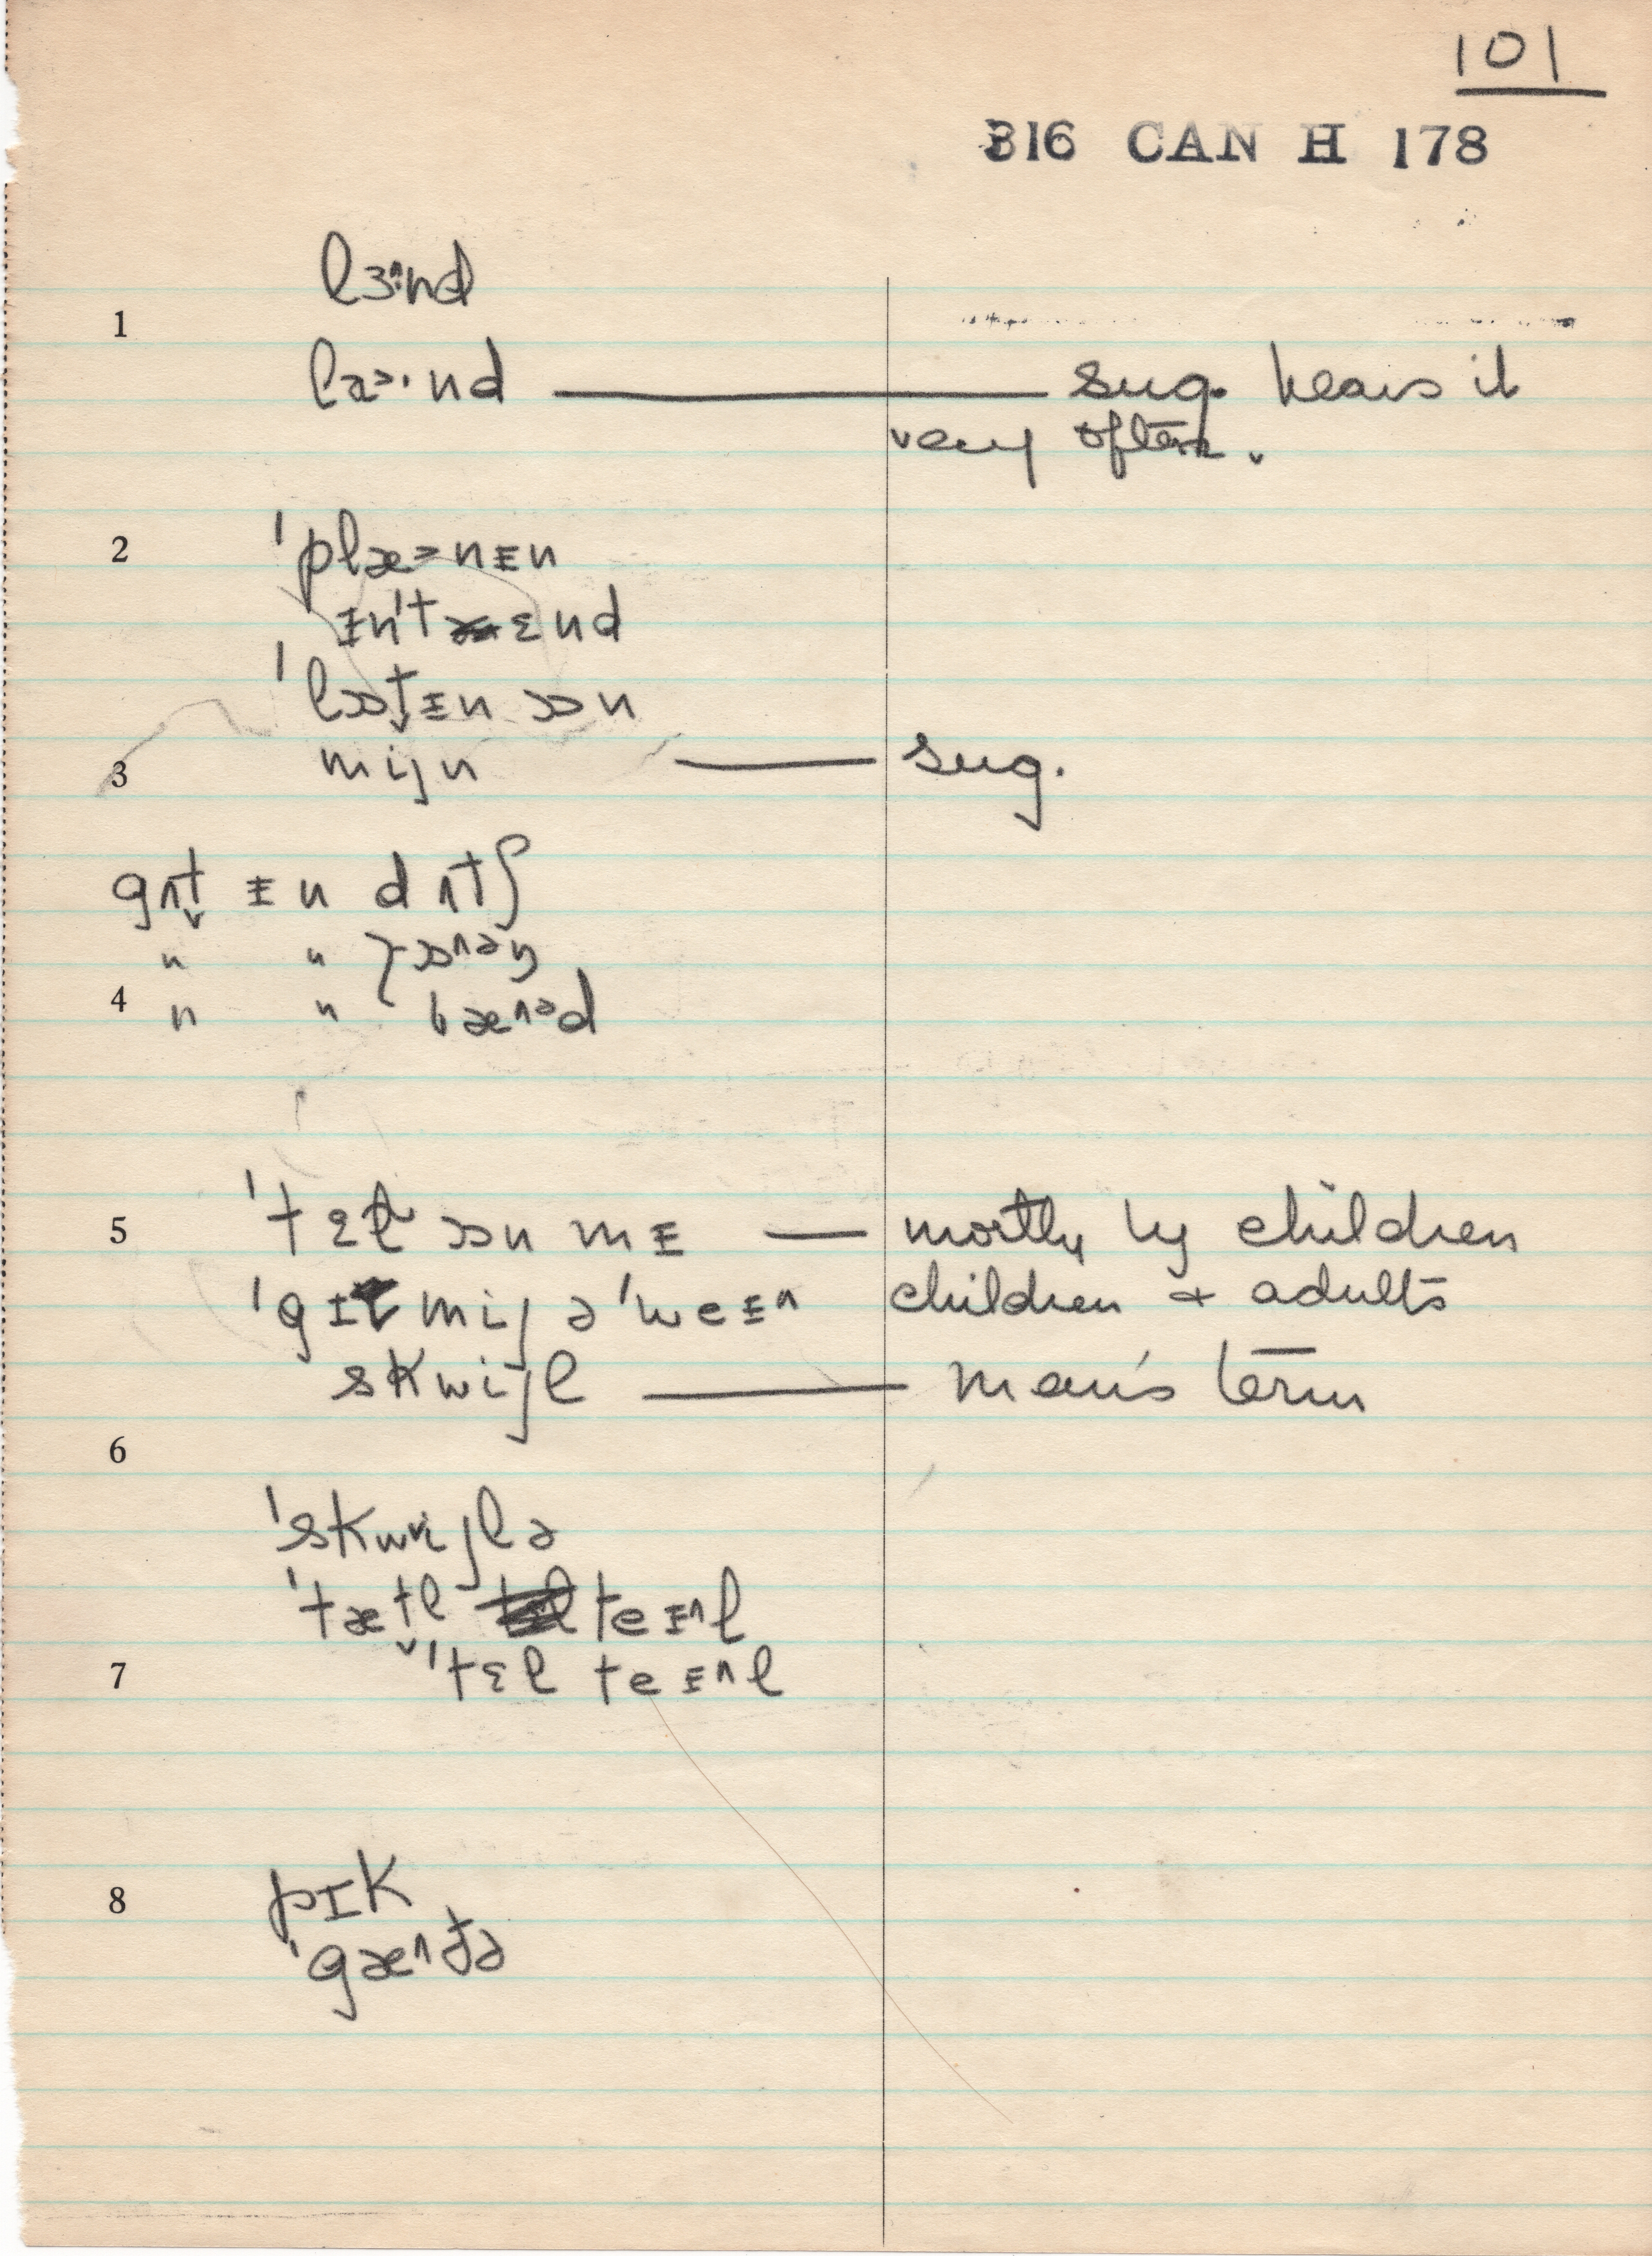 101
316 CAN H 178
lɜ^:nd
1
læ>·nd — sug. hears it
very often.
2 ˈplæ>nɪn
ɪnˈtɛnd
ˈlɒt̬ɪn ɒn
3 mijn — sug.
gʌt̬ ɪn dʌtʃ
" " ɒ^əŋ
4 " " bæ^əd
5 ˈtɛt̬l ɒn mɪ — mostly by children
ˈgɪt mij əˈweɪ^ children + adults
skwijl — man's term
6
ˈskwijlə
ˈtæt̬l teɪ^l
7 ˈtɛl teɪ^l
8 pɪk
ˈgæ^ðə